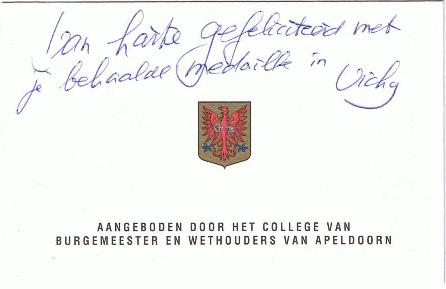 Van harte gefeliciteerd met
je behaalde medaille in Vichy
AANGEBODEN DOOR HET COLLEGE VAN
BURGEMEESTER EN WETHOUDERS VAN APELDOORN